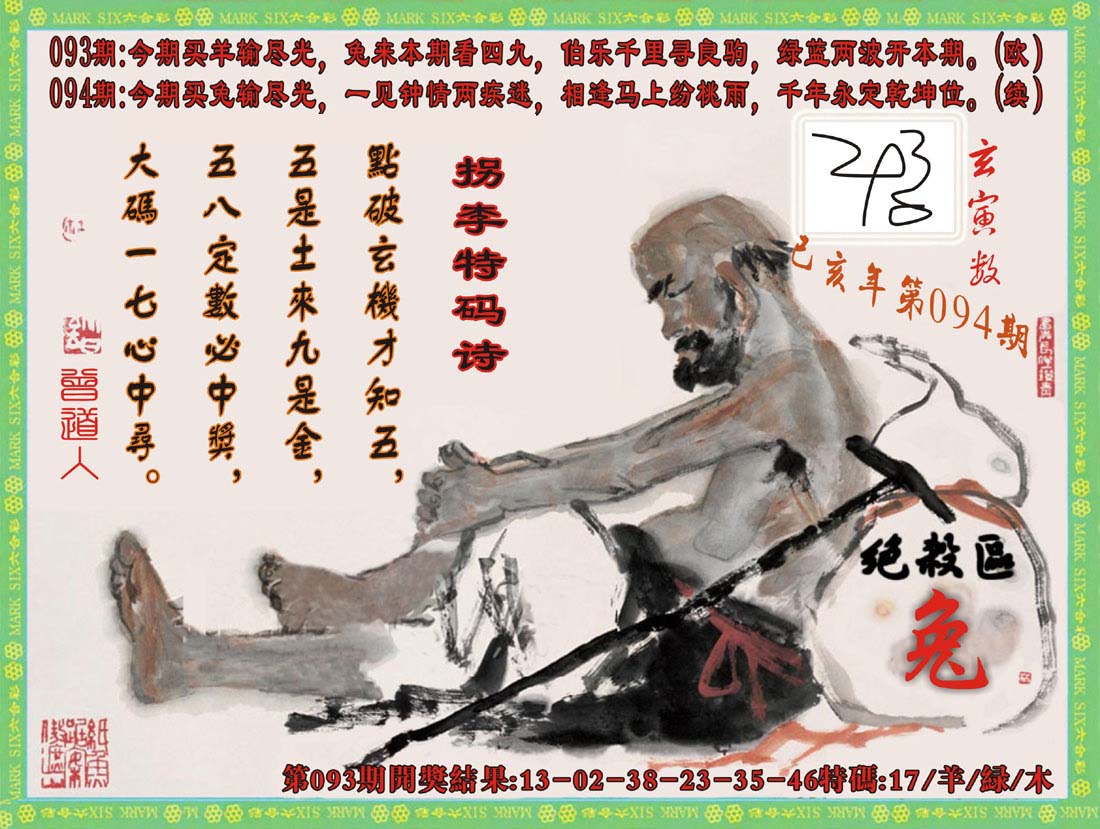 MARK SIX六合彩
093期:今期买羊输尽光，兔来本期看四九，伯乐千里寻良驹，绿蓝两波开本期。(欧)
094期:今期买兔输尽光，一见钟情两疾迷，相逢马上纷桃雨，千年永定乾坤位。(续)
玄寅数
己亥年第094期
拐李特码诗
點破玄機才知五，
五是土來九是金，
五八定數必中獎，
大碼一七心中尋。
曾道人
绝殺區
兔
第093期開獎結果:13-02-38-23-35-46特碼:17/羊/緑/木